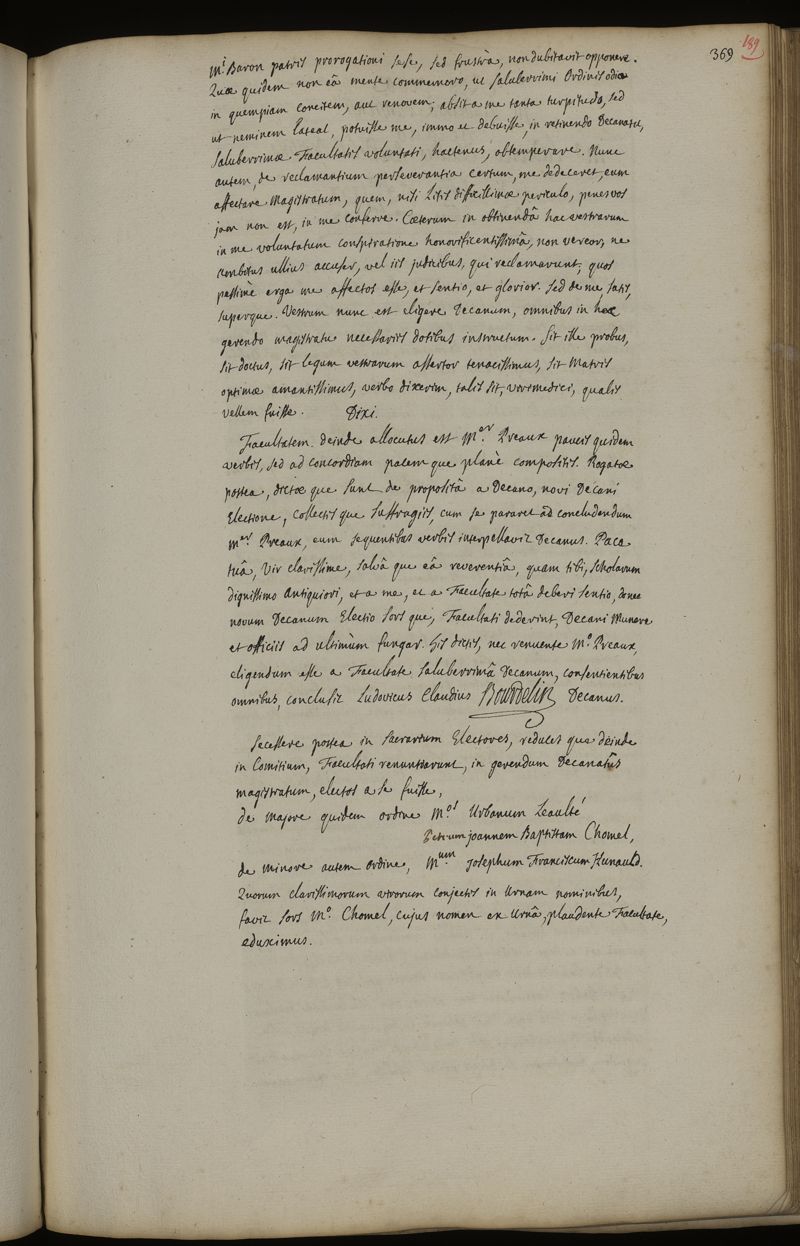 369 189
M.i Baron patris prorogationi sese, sed frustrà, non dubitavit opponere.
Quæ quidem non eâ mente commemoro, ut saluberrimi Ordinis odia
in quempiam concitem, aut renovem; absit a me tanta turpitudo, sed
ut neminem lateat, potuisse me, immo et debuisse, in retinendo Decanatu,
saluberrimæ Facultatis voluntati, hactenus, obtemperare. Nunc
autem, de reclamantium perseverantia certum, me dedeceret, eum
affectare Magistratum, quem, nisi Litis difficillimæ periculo, penes vos
jam non est, in me conferre. Cæterum in obtinendâ hac vestrarum
in me voluntatum conspiratione honorificentissimâ, non vereor, ne
ambitus ullius accuser, vel iis judicibus, qui reclamarunt, quos
pessimè erga me affectos esse, et sentio, et glorior. Sed de me satis,
superque. Vestrum nunc est eligere Decanum, omnibus in hoc
gerendo magistratu necessariis dotibus instructum. Sit ille probus,
sit doctus, sit legum vestrarum assertor tenacissimus, sit Matris
optimæ amantissimus, verbo dixerim, talis sit, viri medici, qualis
vellem fuisse. Dixi.
Facultatem deinde allocutus est M.er Preaux paucis quidem
verbis, sed ad concordiam pacem que planè compositis. Rogatæ
postea, dictæ que sunt de propositâ a Decano, novi Decani
Electione, collectis que suffragiis, cum se pararet ad concludendum
M.er Preaux, eum sequentibus verbis interpellavit Decanus. Pace
tuâ, Vir clarissime, salvâ que eâ reverentiâ, quam tibi, scholarum
dignissimo Antiquiori, et a me, et a Facultate totâ deberi sentio, donec
novum Decanum Electio sors que, Facultati dederint, Decani Munere
et officiis ad ultimùm fungar. His dictis, nec renuente M.o Preaux,
eligendum esse a Facultate saluberrimâ Decanum, consentientibus
omnibus, conclusit Ludovicus Claudius Bourdelin Decanus.
Secessere postea in sacrarium Electores, reduces que deinde
in Comitium, Facultati renuntiarunt, in gerendum Decanatûs
magistratum, electos a se fuisse,
de majore quidem ordine M.os Urbanum Leaulté
Petrum joannem Baptistam Chomel,
de minore autem ordine, M.um Josephum Franciscum Hunauld.
Quorum clarissimorum virorum conjectis in Urnam nominibus,
favit sors M.o Chomel, cujus nomen ex Urnâ, plaudente Facultate,
eduximus.